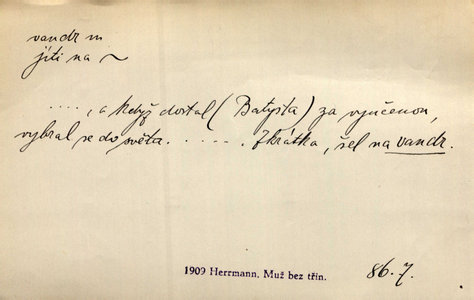 vandr m
jíti na ~
...., a když dostal (Batysta) za vyučenou,
vybral se do světa. ...... Zkrátka, šel na vandr.
1909 Herrmann, Muž bez třin.
86.7.